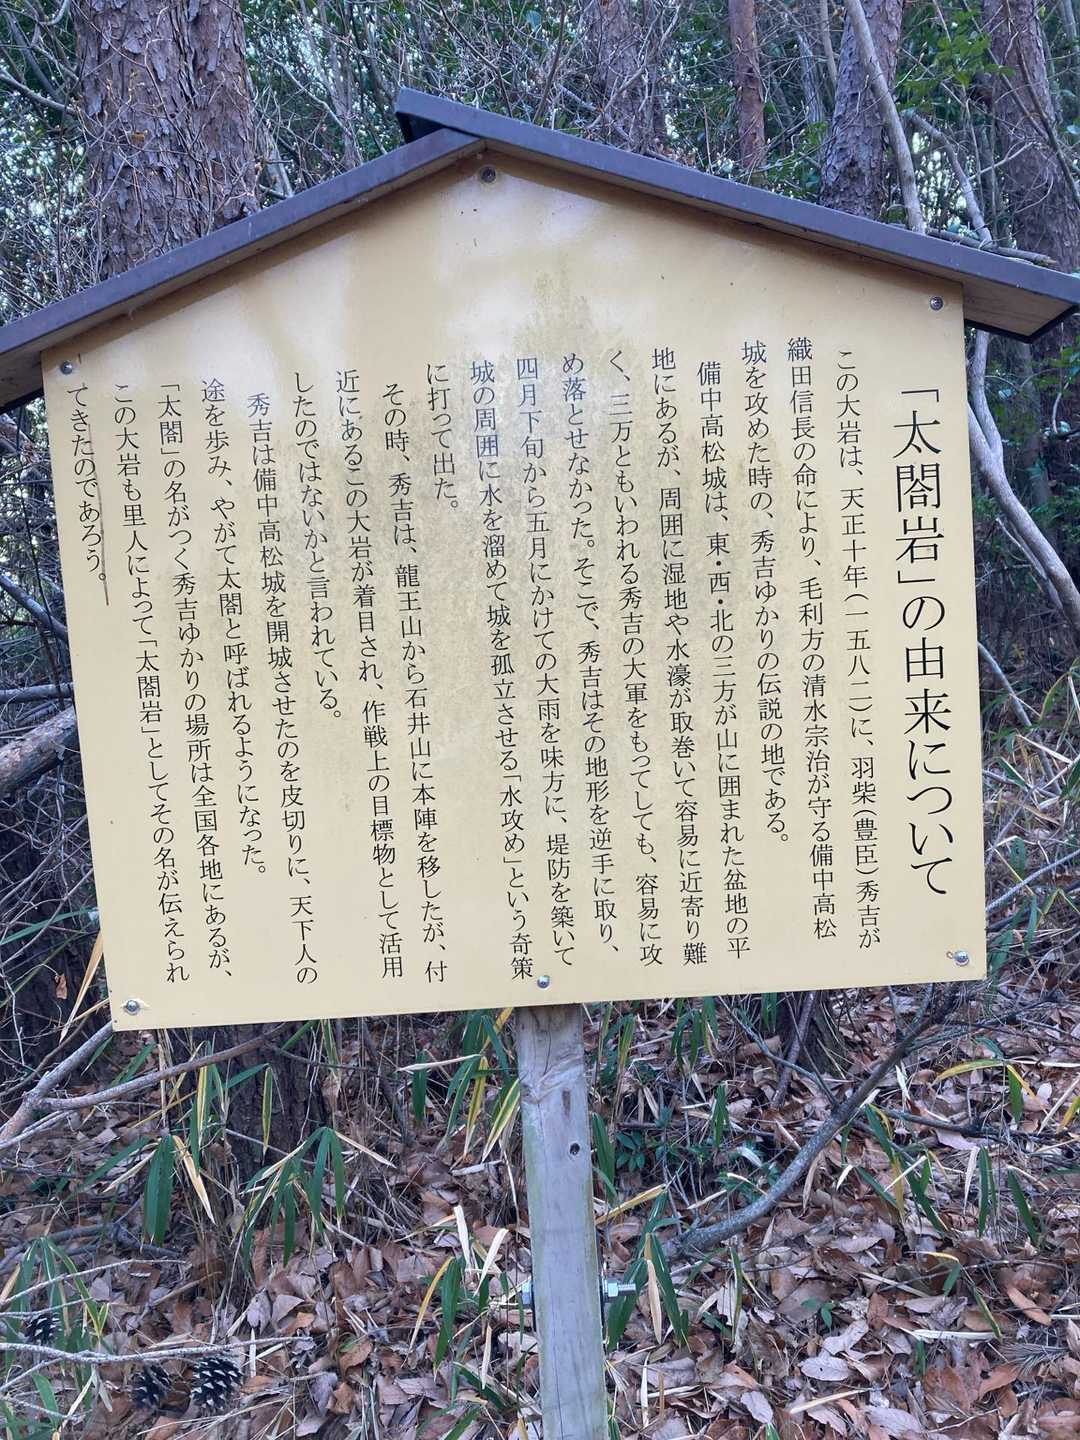 「太閤岩」の由来について
この大岩は、天正十年（一五八二）に、羽柴（豊臣）秀吉が
織田信長の命により、毛利方の清水宗治が守る備中高松
城を攻めた時の、秀吉ゆかりの伝説の地である。
備中高松城は、東・西・北の三方が山に囲まれた盆地の平
地にあるが、周囲に湿地や水濠が取巻いて容易に近寄り難
く、三万ともいわれる秀吉の大軍をもってしても、容易に攻
め落とせなかった。そこで、秀吉はその地形を逆手に取り、
四月下旬から五月にかけての大雨を味方に、堤防を築いて
城の周囲に水を溜めて城を孤立させる「水攻め」という奇策
に打って出た。
その時、秀吉は、龍王山から石井山に本陣を移したが、付
近にあるこの大岩が着目され、作戦上の目標物として活用
したのではないかと言われている。
秀吉は備中高松城を開城させたのを皮切りに、天下人の
途を歩み、やがて太閤と呼ばれるようになった。
「太閤」の名がつく秀吉ゆかりの場所は全国各地にあるが、
この大岩も里人によって「太閤岩」としてその名が伝えられ
てきたのであろう。